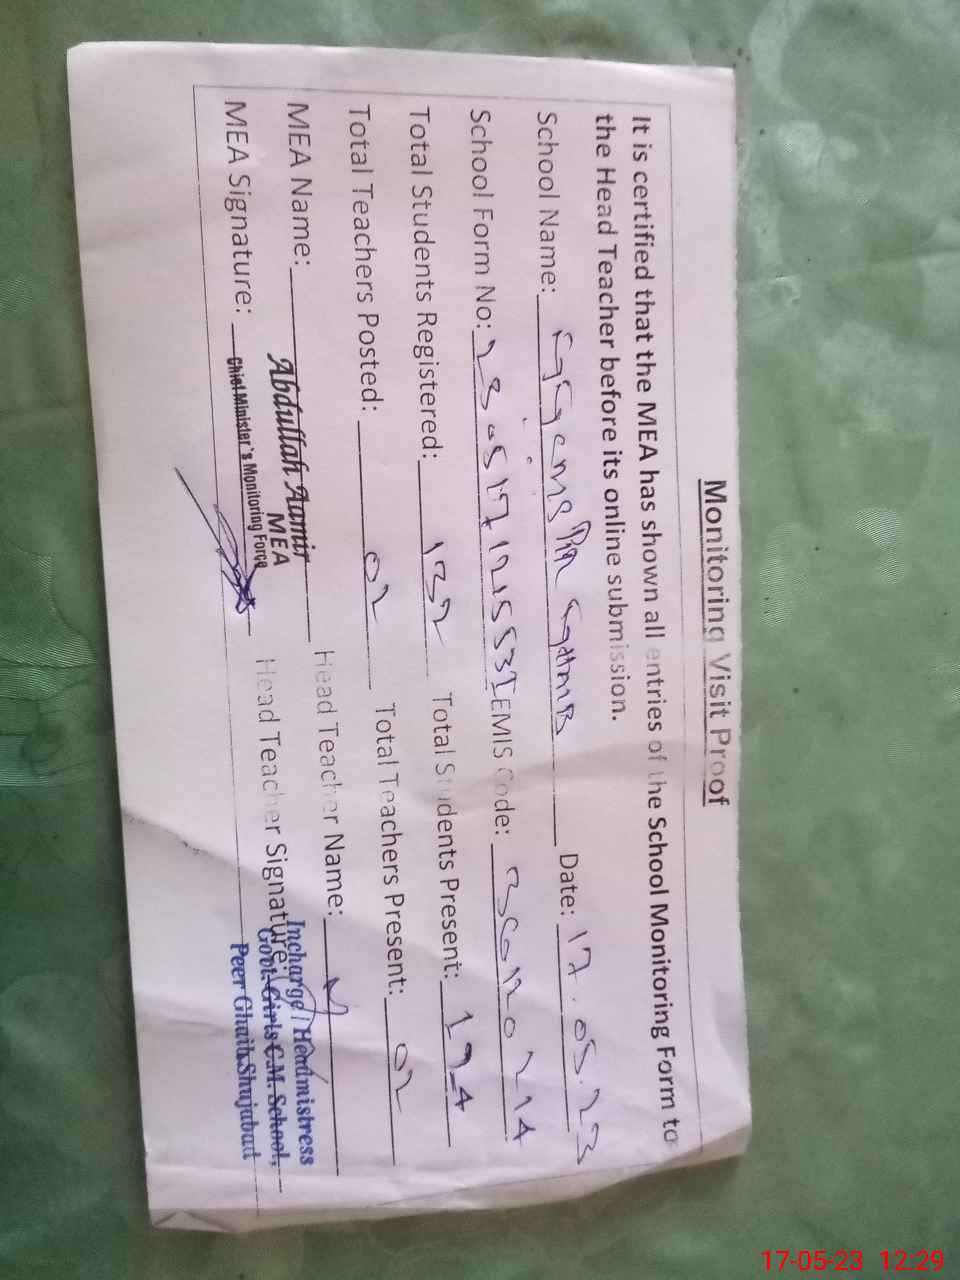 Monitoring Visit Proof
It is certified that the MEA has shown all entries of the School Monitoring Form to
the Head Teacher before its online submission.
School Name: GGCMS Date: 17.05.23
School Form No: EMIS Code:
Total Students Registered: 132 Total Students Present: 124
Total Teachers Posted: 02 Total Teachers Present: 02
MEA Name: Abdullah Aamir Head Teacher Name:
MEA
MEA Signature: Chief Minister's Monitoring Force Head Teacher Signature:
Incharge / Headmistress
Govt. Girls C.M. School,
Peer Ghaib Shujabad
17-05-23 12:29